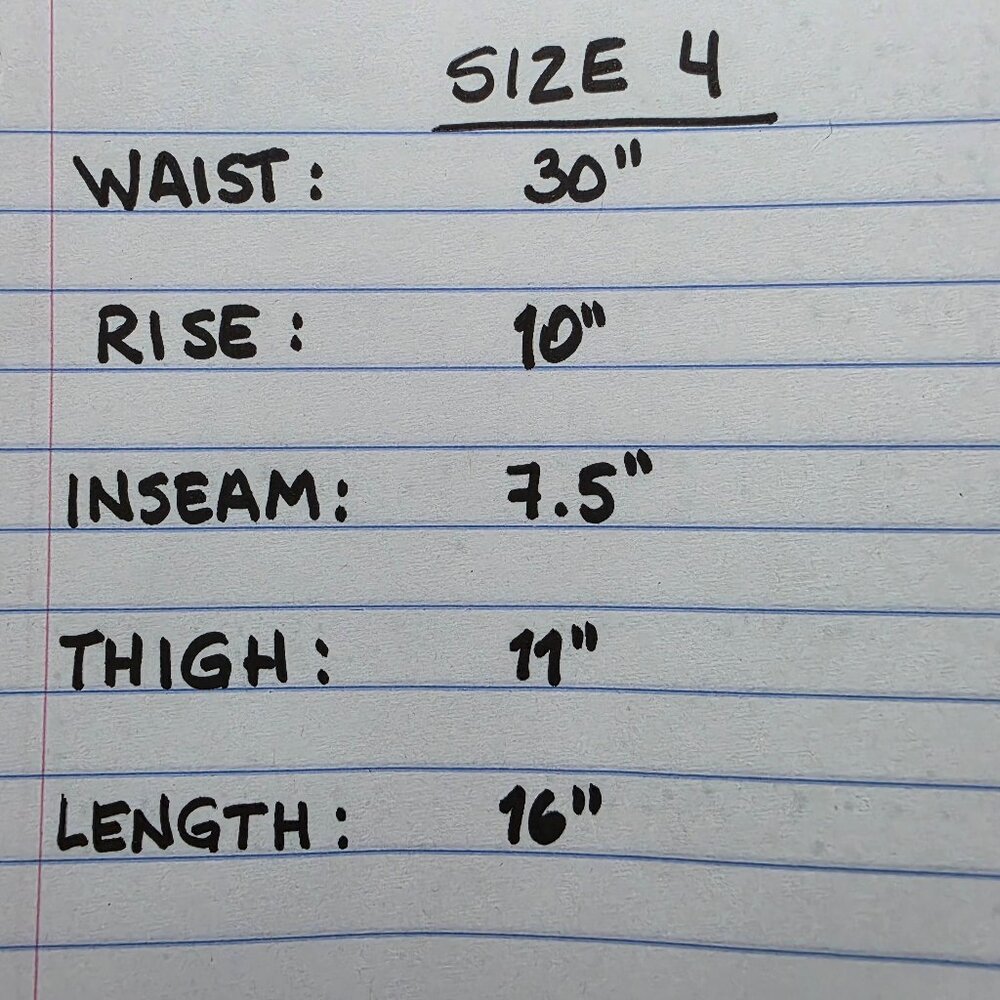 SIZE 4
WAIST: 30"
RISE: 10"
INSEAM: 7.5"
THIGH: 11"
LENGTH: 16"